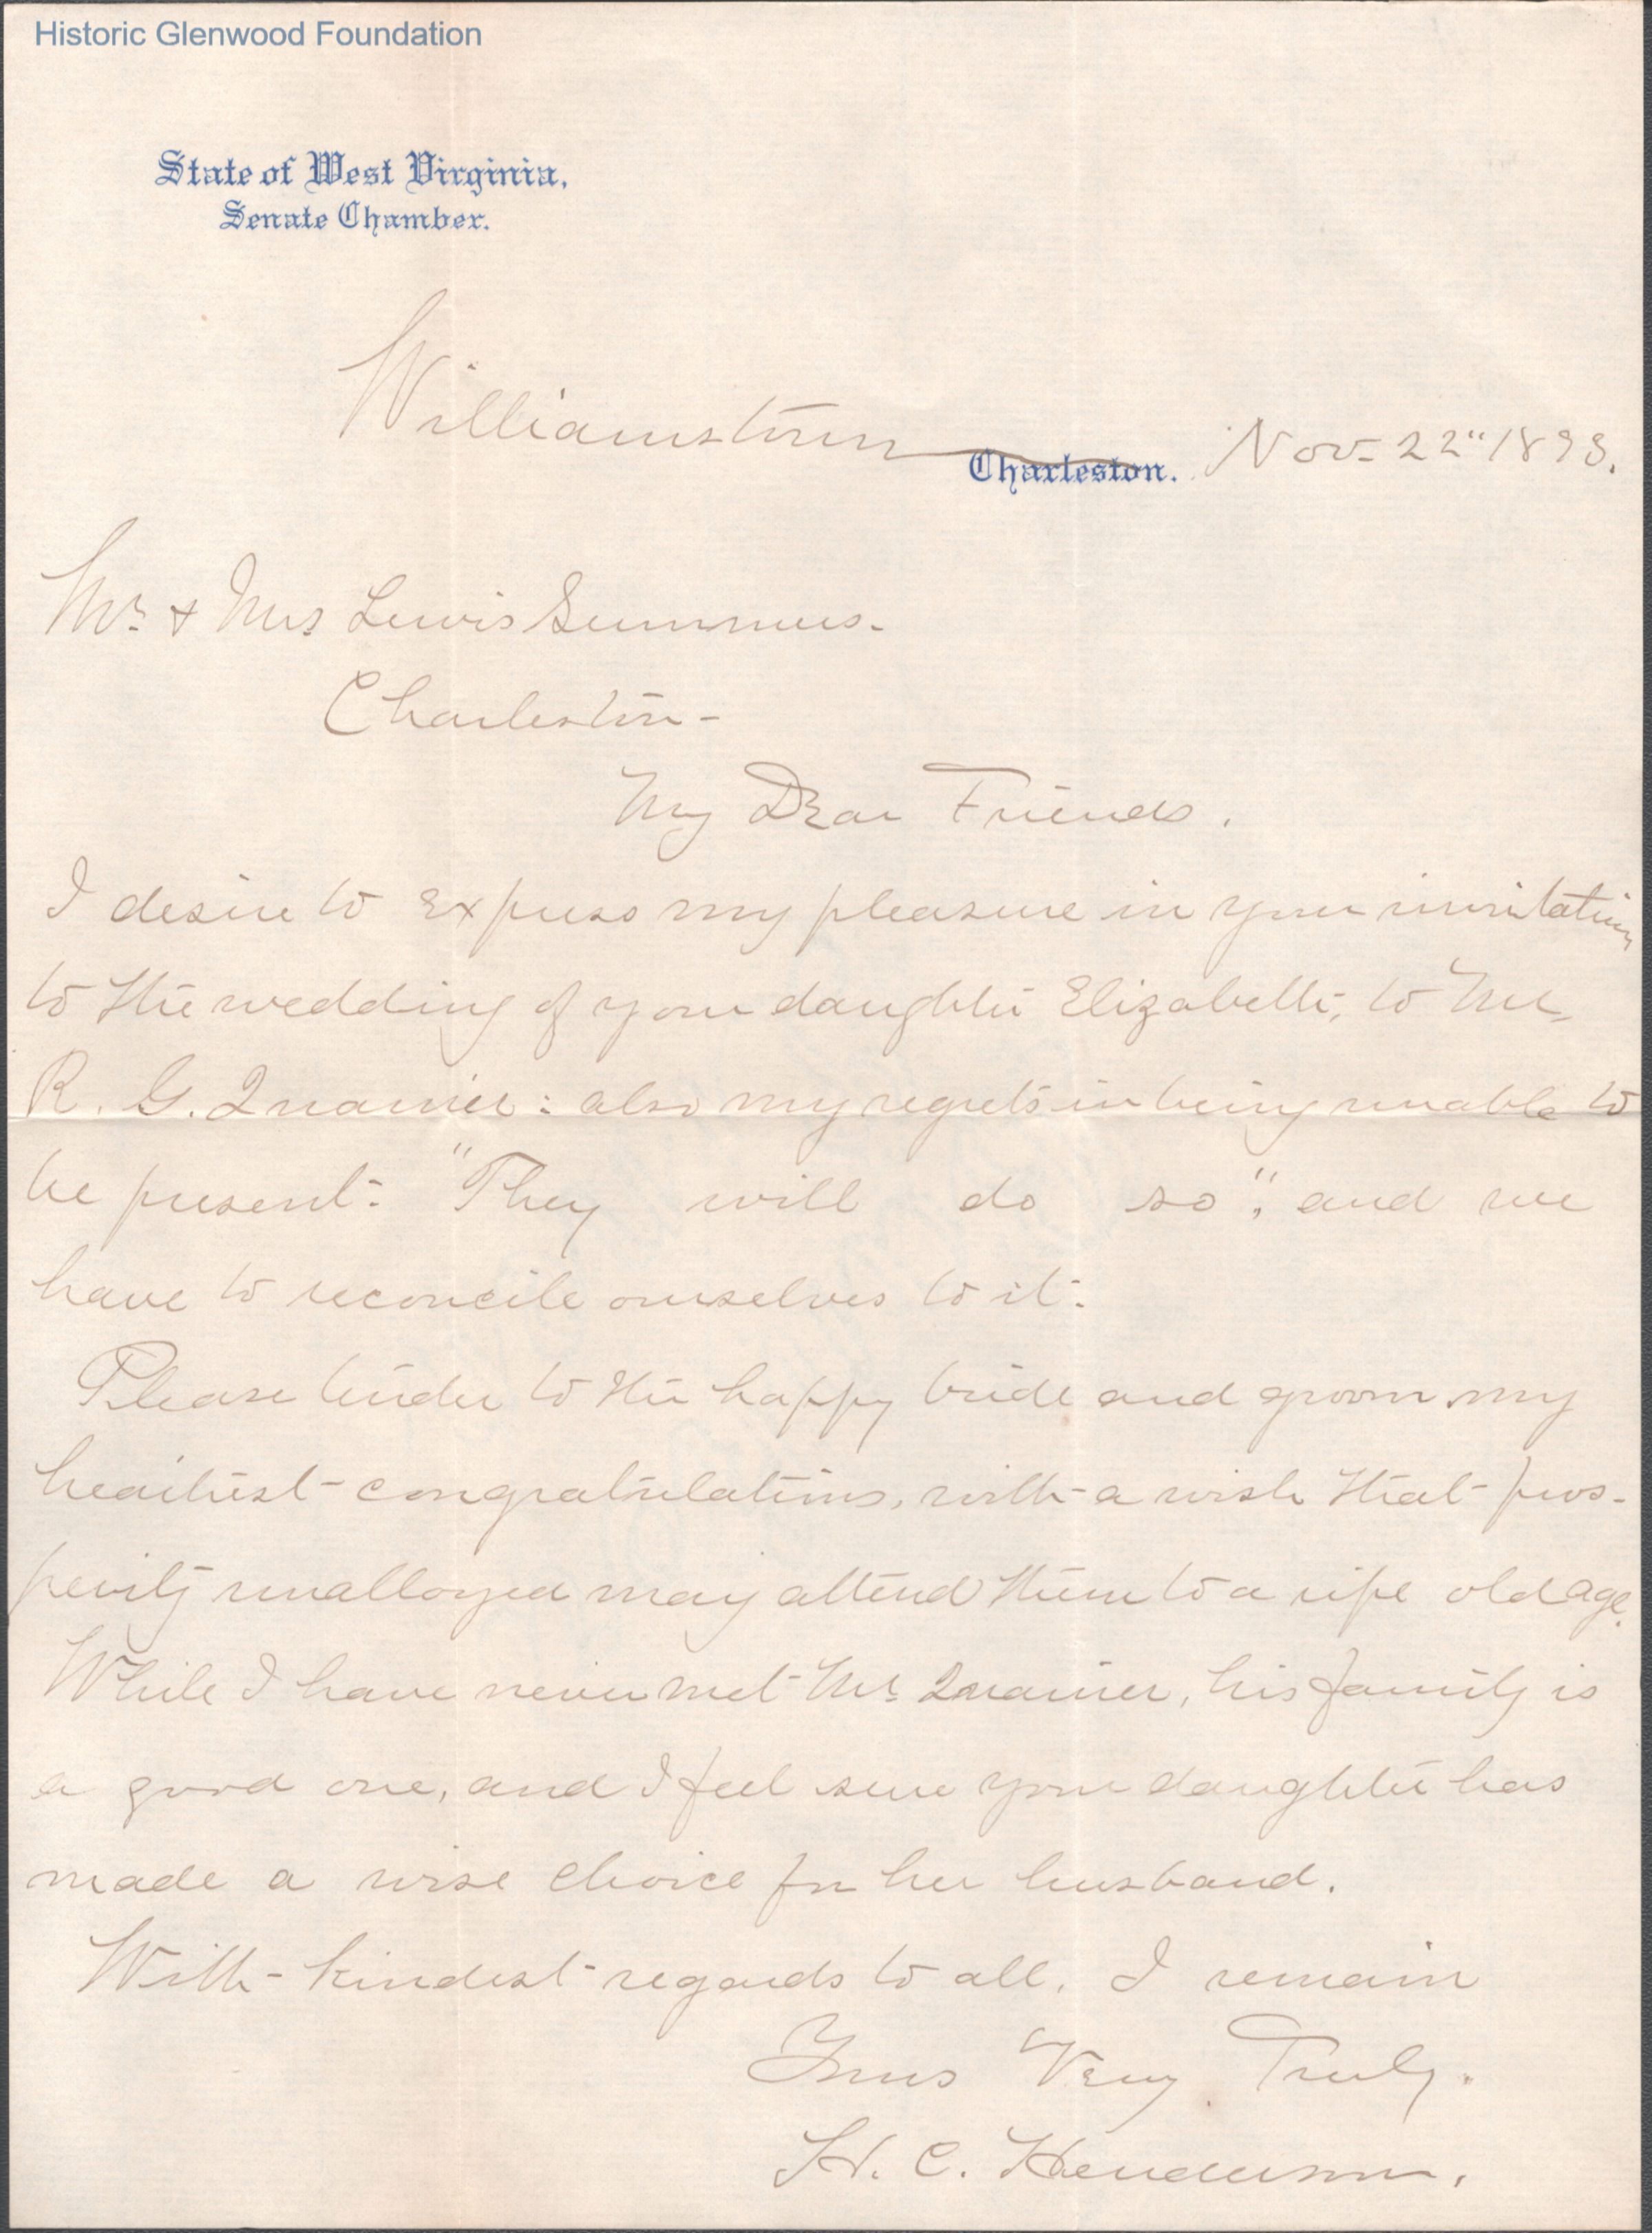 Historic Glenwood Foundation
State of West Virginia,
Senate Chamber.
Williamstown
Charleston. Nov. 22" 1893.
Mr. & Mrs Lewis Summers.
Charleston-
My Dear Friends.
I desire to express my pleasure in your invitation
to the wedding of your daughter Elizabeth, to Mr.
R. G. Quarrier: also my regrets in being unable to
be present. "They will do so", and we
have to reconcile ourselves to it.
Please tender to the happy bride and groom my
heartiest congratulations, with a wish that pros-
perity unalloyed may attend them to a ripe old age.
While I have never met Mr Quarrier, his family is
a good one, and I feel sure your daughter has
made a wise choice for her husband.
With kindest regards to all, I remain
Yours Very Truly.
H. C. Henderson.